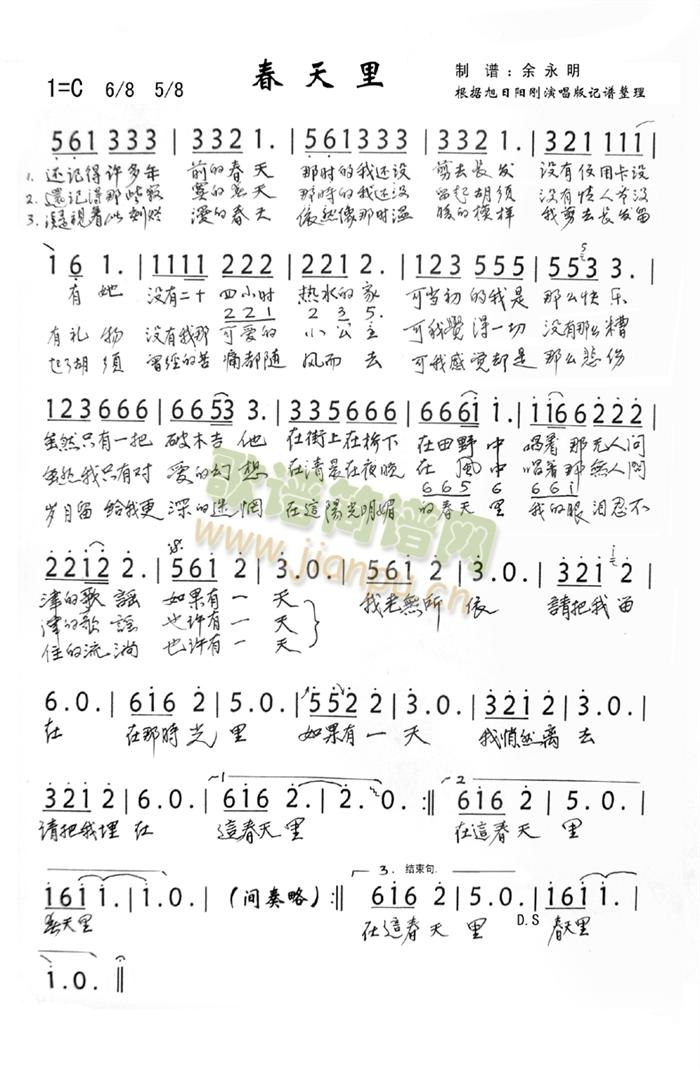 春天里
1=C 6/8 5/8
制 谱：余永明
根据旭日阳刚演唱版记谱整理
561 333 | 332 1. | 561 333 | 332 1. | 321 111 |
1. 还记得许多年 前的春天 那时的我还没 剪去长发 没有信用卡没
2. 還记得那些寂 寞的春天 那時的我还没 留起胡须 没有情人节没
3. 凝視着此刻烂 漫的春天 依然像那时温 暖的模样 我剪去长发留
1 6 1. | 1111 222 | 2221 2. | 123 555 | 5553 3. |
有她 没有二十 四小时 热水的家 可当初的我是 那么快乐
2 2 1 2 3 5.
有礼物 没有我那 可爱的 小公主 可我覺得一切 没有那么糟
起了胡须 曾经的苦 痛都随 风而去 可我感觉却是 那么悲伤
123 666 | 6653 3. | 335 666 | 6661 1. | 1166 222 |
虽然只有一把 破木吉他 在街上在桥下 在田野中 唱着那无人问
虽然我只有对 爱的幻想 在清晨在夜晚 在風中 唱着那無人問
6 6 5 6 6 6 1
岁月留给我更 深的迷惘 在這陽光明媚 的春天里 我的眼泪忍不
2212 2. | 561 2 | 3.0. | 561 2 | 3.0. | 321 2 |
津的歌謡 如果有一天 我老無所依 請把我留
津的歌謡 也许有一天
住的流淌 也许有一天
6.0. | 616 2 | 5.0. | 552 2 | 3.0. | 321 2 | 3.0. |
在 在那時光里 如果有一天 我悄然离去
321 2 | 6.0. | 616 2. | 2.0. :‖ 616 2 | 5.0. |
1
2
請把我埋在 這春天里 在這春天里
161 1. | 1.0. | (间奏略) :‖ 616 2 | 5.0. | 161 1. |
3. 结束句.
春天里 在這春天里 D.S 春天里
1.0. ‖
歌谱简谱网
www.jianpu.cn